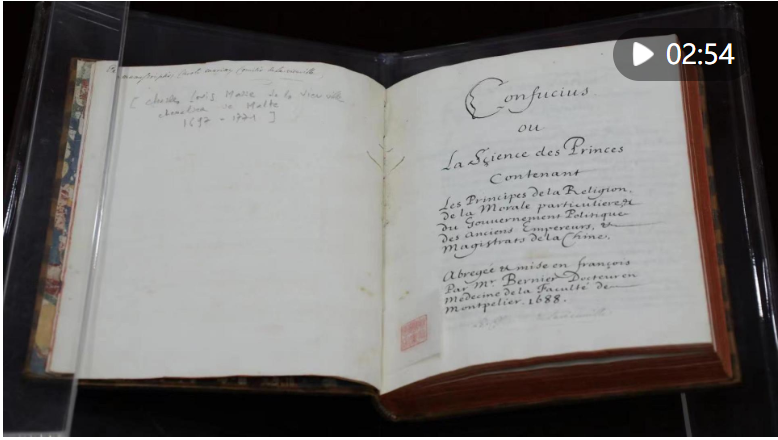 [Charles Louis Marie de la Vieuville
chevalier de Malte
1697 - 1771 ]
Confucius
ou
La Science des Princes
Contenant
Les Principes de la Religion.
de la Morale particuliere, &
du Gouvernement Politique
des Anciens Empereurs, &
Magistrats de la Chine.
Abregée & mise en françois
Par Mr. Bernier Docteur en
Medecine de la Faculté de
Montpelier. 1688.
02:54